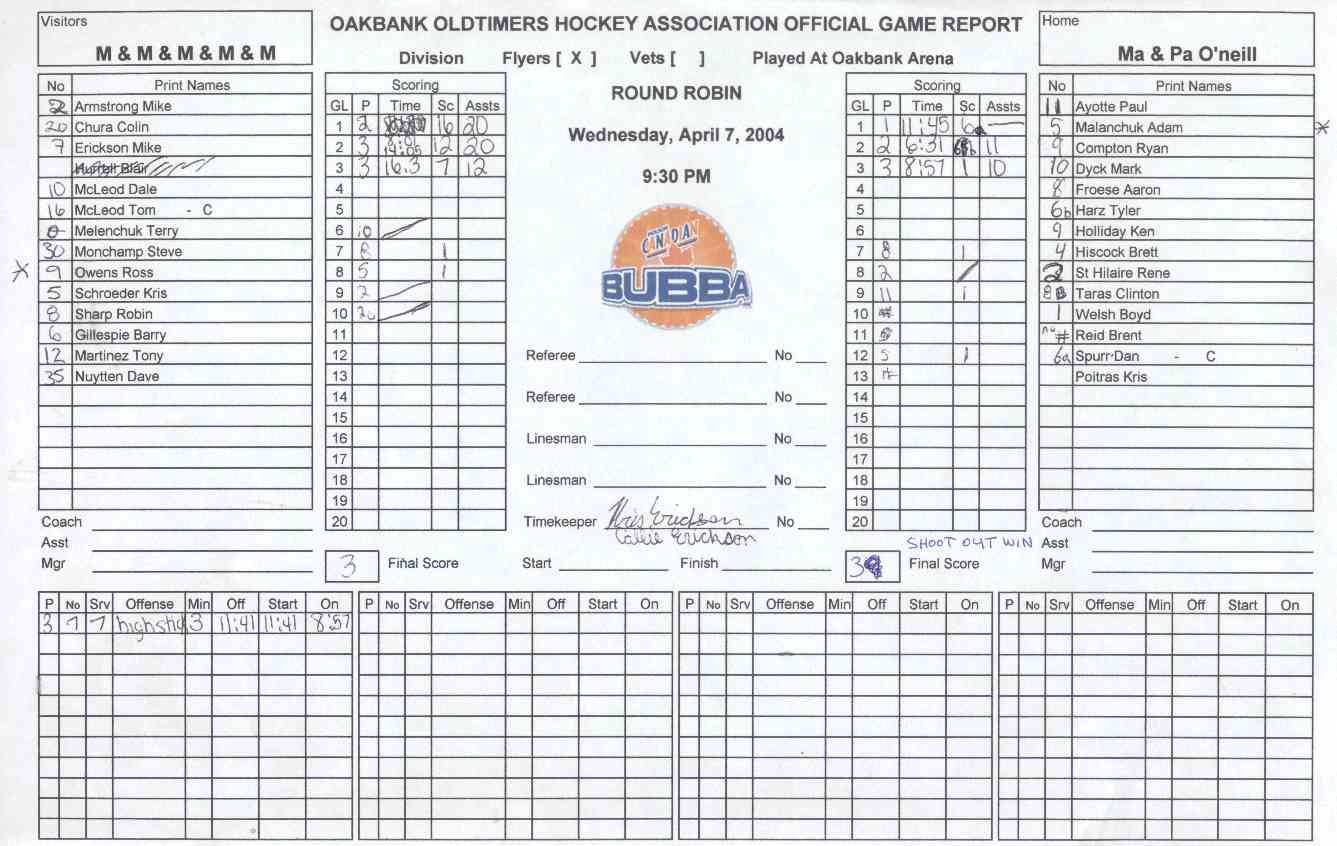 Visitors
M & M & M & M & M
OAKBANK OLDTIMERS HOCKEY ASSOCIATION OFFICIAL GAME REPORT
Division Flyers [ X ] Vets [ ] Played At Oakbank Arena
Home
Ma & Pa O'neill
ROUND ROBIN
Wednesday, April 7, 2004
9:30 PM
CANADIAN
BUBBA
No Print Names
2 Armstrong Mike
20 Chura Colin
7 Erickson Mike
10 McLeod Dale
16 McLeod Tom - C
Melenchuk Terry
30 Monchamp Steve
* 9 Owens Ross
5 Schroeder Kris
8 Sharp Robin
6 Gillespie Barry
12 Martinez Tony
35 Nuytten Dave
Coach
Asst
Mgr
Scoring
GL P Time Sc Assts
1 2 16 20
2 3 14:05 12 20
3 3 16.3 7 12
4
5
6 10
7 8 1
8 5 1
9 2
10 20
11
12
13
14
15
16
17
18
19
20
3 Final Score
Referee No
Referee No
Linesman No
Linesman No
Timekeeper Kris Erickson No
Callie Erickson
Start Finish
Scoring
GL P Time Sc Assts
1 1 11:45 6a —
2 2 6:31 6b 11
3 3 8:57 1 10
4
5
6
7 8 1
8 2
9 11 1
10 #
11
12 5 1
13 #
14
15
16
17
18
19
20
SHOOT OUT WIN
3 Final Score
No Print Names
11 Ayotte Paul
5 Malanchuk Adam *
9 Compton Ryan
10 Dyck Mark
8 Froese Aaron
6b Harz Tyler
9 Holliday Ken
4 Hiscock Brett
2 St Hilaire Rene
8B Taras Clinton
1 Welsh Boyd
no # Reid Brent
6a Spurr Dan - C
Poitras Kris
Coach
Asst
Mgr
P No Srv Offense Min Off Start On
3 7 7 highstig 3 11:41 11:41 8:57
P No Srv Offense Min Off Start On
P No Srv Offense Min Off Start On
P No Srv Offense Min Off Start On